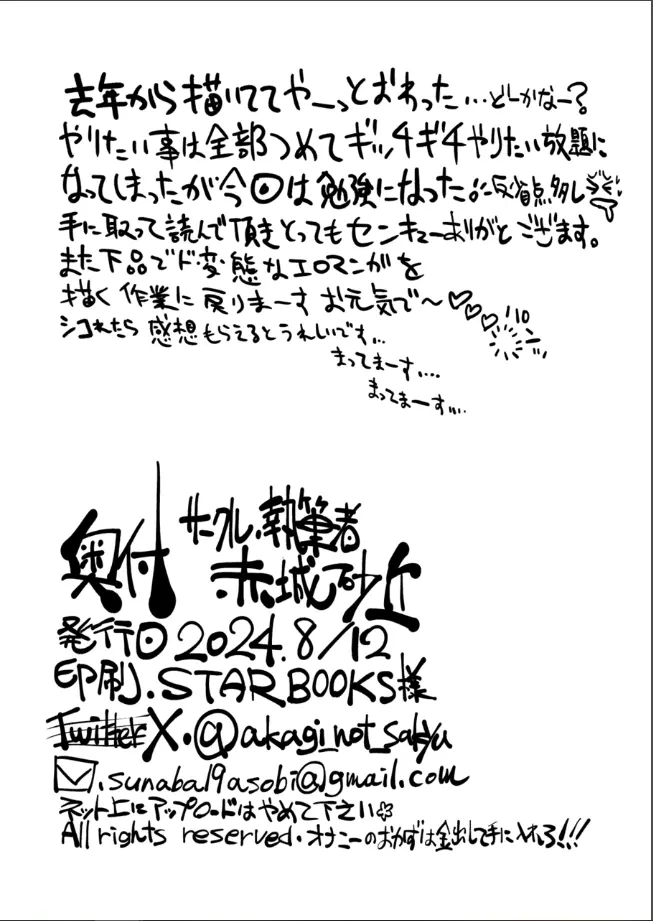 去年から描いててやーっとおわった…どしかなー?
やりたい事は全部つめてギッチギチやりたい放題に
なってしまったが今回は勉強になった。(反省点多し
手に取って読んで頂きとってもセンキューありがとうございます。
また下品でド変態なエロマンガを
描く作業に戻りまーす お元気で〜♡♡♡
シコれたら感想もらえるとうれしいです…
まってまーす…
まってまーす…
奥付
サークル.執筆者
赤城砂丘
発行日 2024.8/12
印刷.STAR BOOKS様
Twitter X.@akagi_not_sakyu
.sunaba19asobi@gmail.com
ネット上にアップロードはやめて下さい
All rights reserved.オナニーのおかずは金出して手に入れろ!!!